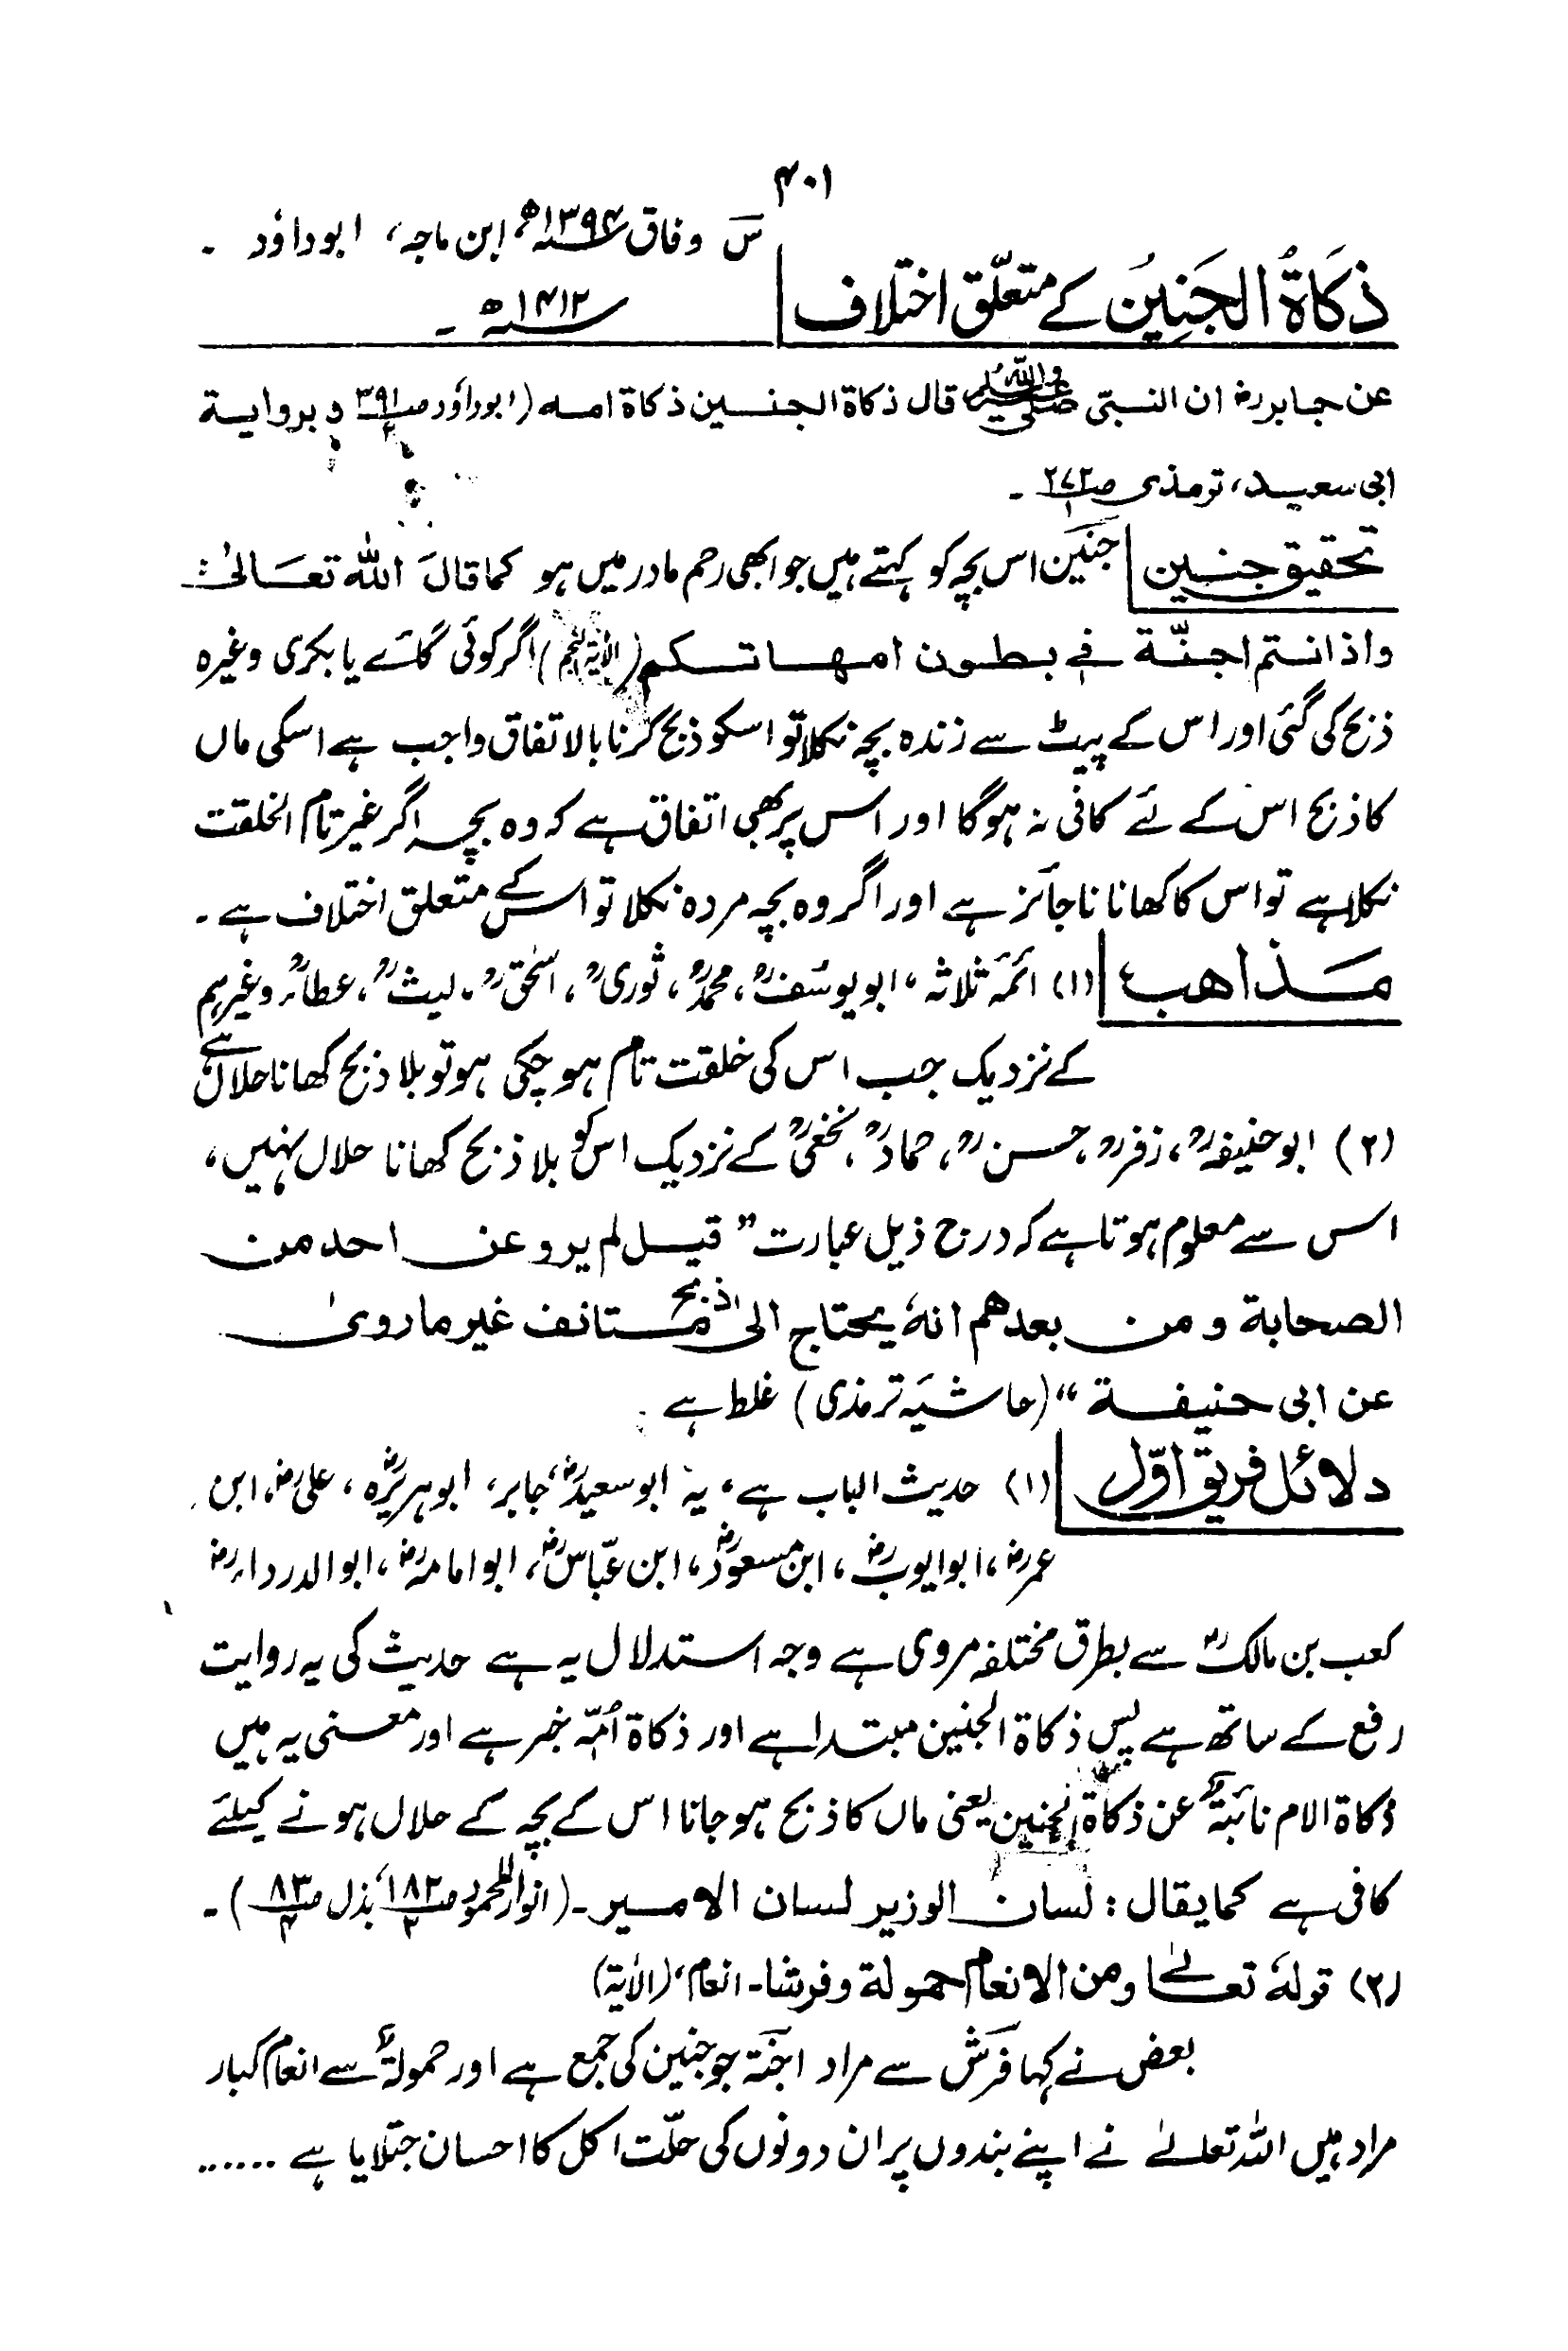 ۴۰۱
س وفاق ۱۳۹۴ھ، ابن ماجہ، ابوداؤد ۔
ذکَاۃُ الجَنِینُ کے متعلّق اختلاف
۱۴۱۲ھ ۔
عن جابر رض ان النبیّ ﷺ قال ذکاۃ الجنین ذکاۃ امہ (ابوداؤد ص۳۹۱/۲ و بروایۃ
ابی سعید، ترمذی ص۲۷۲/۱ ۔
تحقیق جنین جَنِین اس بچہ کو کہتے ہیں جو ابھی رحم مادر میں ہو کما قالَ اللہ تعَالیٰ:
واذ انتم اجنّۃ فی بطون امھاتکم (الآیۃ النجم) اگر کوئی گائے یا بکری وغیرہ
ذبح کی گئی اور اس کے پیٹ سے زندہ بچہ نکلا تو اسکو ذبح کرنا بالاتفاق واجب ہے اسکی ماں
کا ذبح اس کے لئے کافی نہ ہوگا اور اس پر بھی اتفاق ہے کہ وہ بچہ اگر غیر تام الخلقت
نکلا ہے تو اس کا کھانا ناجائز ہے اور اگر وہ بچہ مردہ نکلا تو اس کے متعلق اختلاف ہے ۔
مَذاھب (۱) ائمہ ثلاثہ، ابو یوسُفؒ، محمدؒ، ثوریؒ، اسحٰقؒ، لیثؒ، عطاءؒ وغیرہم
کے نزدیک جب اس کی خلقت تام ہو چکی ہو تو بلا ذبح کھانا حلال ہے
(۲) ابو حنیفہؒ، زفرؒ، حسنؒ، حمادؒ، نخعیؒ کے نزدیک اس کو بلا ذبح کھانا حلال نہیں،
اس سے معلوم ہوتا ہے کہ درج ذیل عبارت ” قیل لم یرو عن احد من
الصحابۃ ومن بعدھم انہٗ یحتاج الیٰ ذبح مستانف غیر ما رویٰ
عن ابی حنیفۃ “ (حاشیَہ ترمذی) غلط ہے
دلائل فریق اوّل (۱) حدیث الباب ہے، یہ ابو سعیدؓ، جابر، ابو ہریرؓہ، علیؓ، ابن
عمرؓ، ابو ایوبؓ، ابن مسعودؓ، ابن عبّاسؓ، ابو امامہؓ، ابو الدرداءؓ
کعب بن مالکؓ سے بطرق مختلفہ مروی ہے وجہ استدلال یہ ہے حدیث کی یہ روایت
رفع کے ساتھ ہے پس ذکاۃ الجنین مبتدا ہے اور ذکاۃ اُمّہ خبر ہے اور معنی یہ ہیں
ذکاۃ الام نائبۃٌ عن ذکاۃ الجنین یعنی ماں کا ذبح ہوجانا اس کے بچہ کے حلال ہونے کیلئے
کافی ہے کما یقال: لسان الوزیر لسان الامیر ۔ (انوار المحمود ص۱۸۲/۲، بذل ص۸۳/۴) ۔
(۲) قولہٗ تعالیٰ ومن الانعام حمولۃ وفرشا ۔ انعام، (الاٰیۃ)
بعض نے کہا فَرَش سے مراد اجنّۃ جو جنین کی جمع ہے اور حمولۃٌ سے انعام کبار
مراد ہیں اللہ تعالیٰ نے اپنے بندوں پر ان دونوں کی حلّت اکل کا احسان جتلایا ہے ......